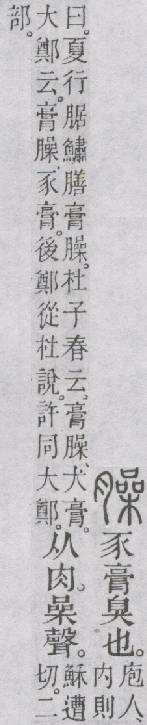 臊豕膏臭也。庖人、
內則
曰。夏行腒鱐膳膏臊。杜子春云。膏臊、犬膏。
大鄭云。膏臊、豕膏。後鄭從杜說。許同大鄭。
从肉。喿聲。
穌遭
切。二
部。